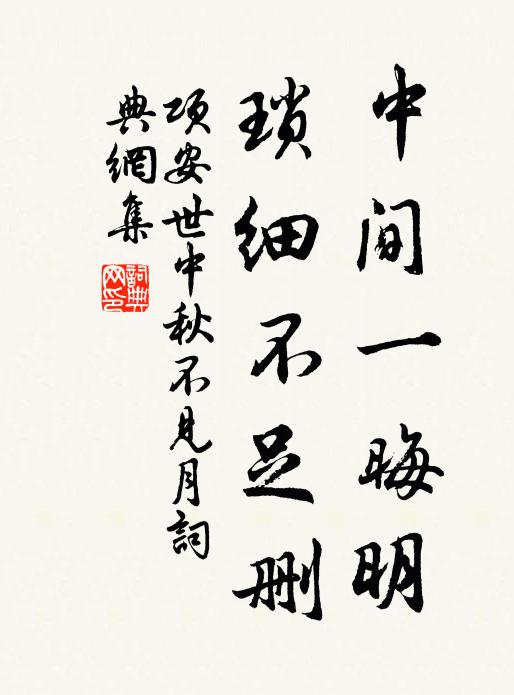 中间一晦明
瑣细不足删
项安世中秋不见月詞
典網集
詞典网印